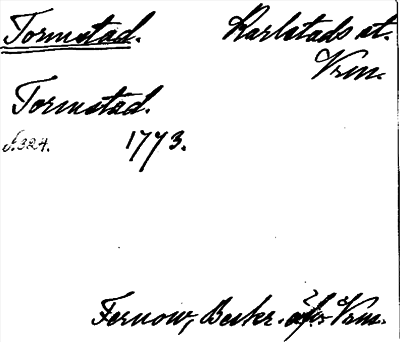 Tormstad. Karlstads st.
Vrm.
Tormstad.
s. 324. 1773.
Fernow, Beskr. öfver Vrm.